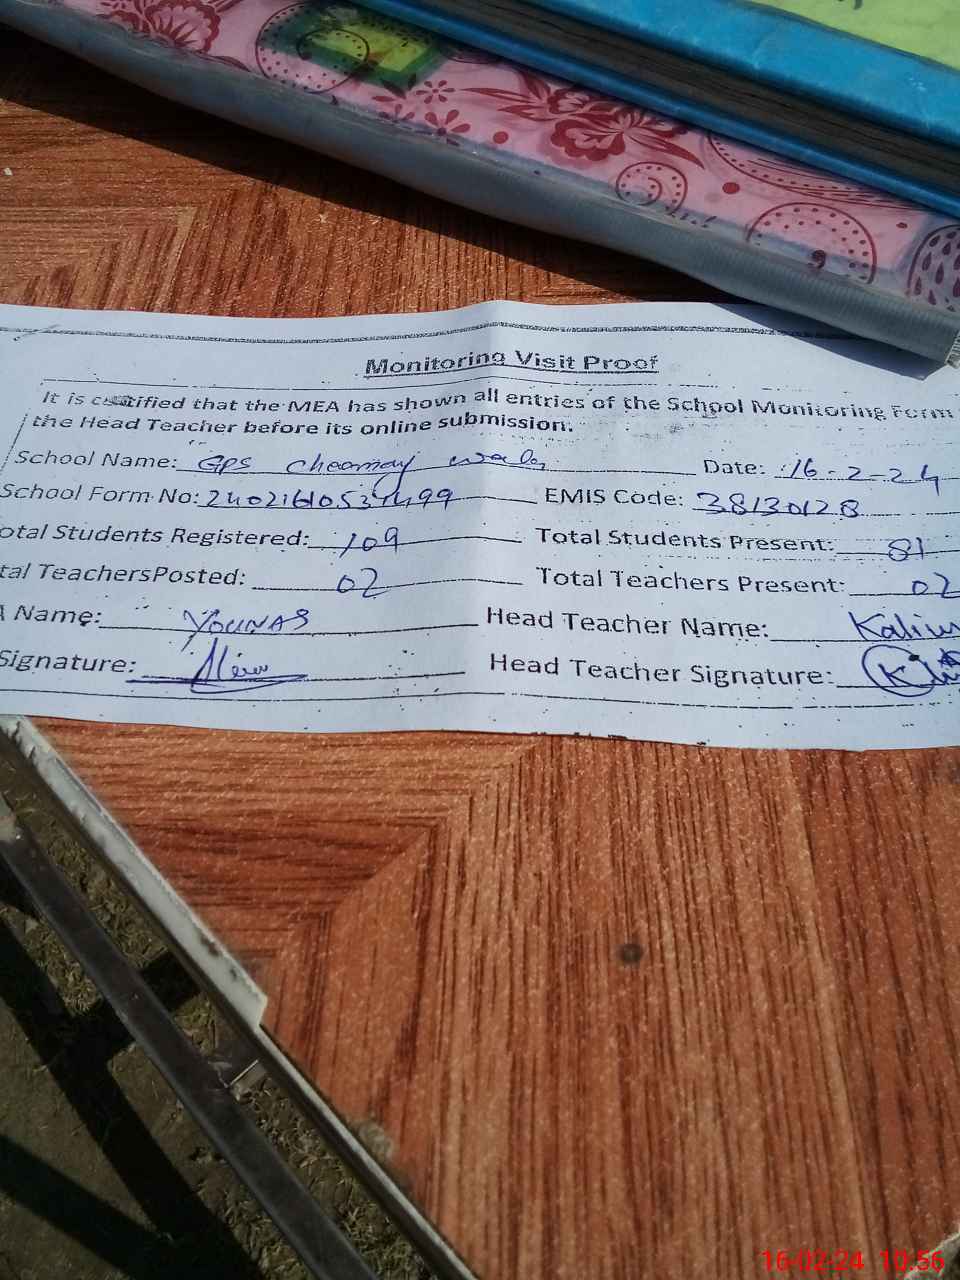 Monitoring Visit Proof
It is certified that the MEA has shown all entries of the School Monitoring Form
the Head Teacher before its online submission.
School Name: GPS Date: 16-2-24
School Form No: EMIS Code: 38130128
otal Students Registered: 109 Total Students Present: 81
tal TeachersPosted: 02 Total Teachers Present: 02
Name: YOUNAS Head Teacher Name:
Signature: Head Teacher Signature:
16-02-24 10:56